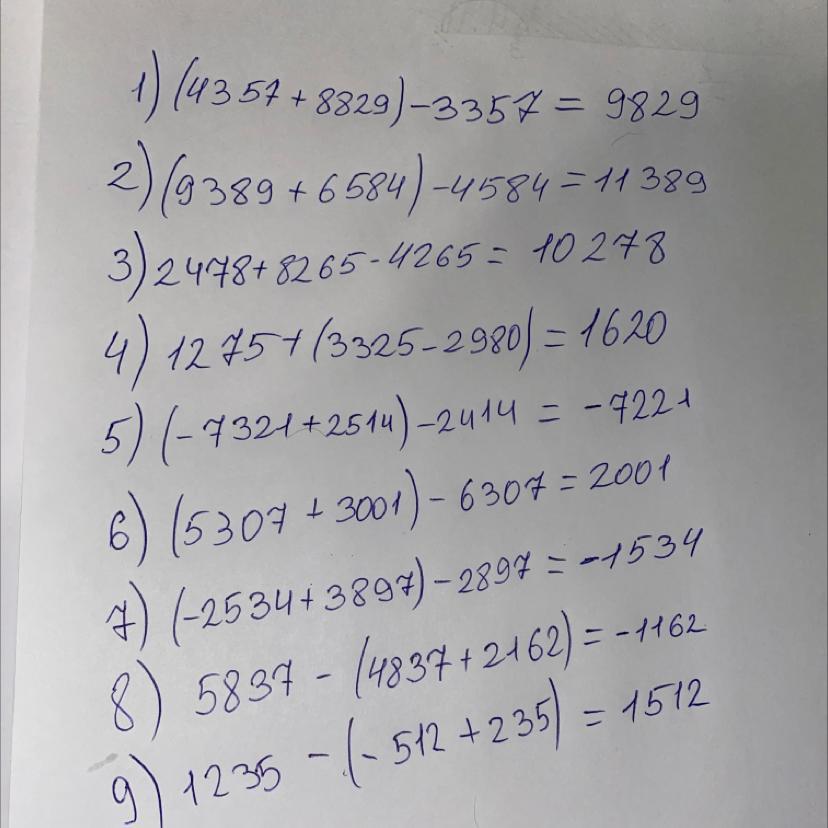 1) (4357 + 8829) - 3357 = 9829
2) (9389 + 6584) - 4584 = 11389
3) 2478 + 8265 - 4265 = 10278
4) 1275 + (3325 - 2980) = 1620
5) (-7321 + 2514) - 2414 = -7221
6) (5307 + 3001) - 6307 = 2001
7) (-2534 + 3897) - 2897 = -1534
8) 5837 - (4837 + 2162) = -1162
9) 1235 - (-512 + 235) = 1512